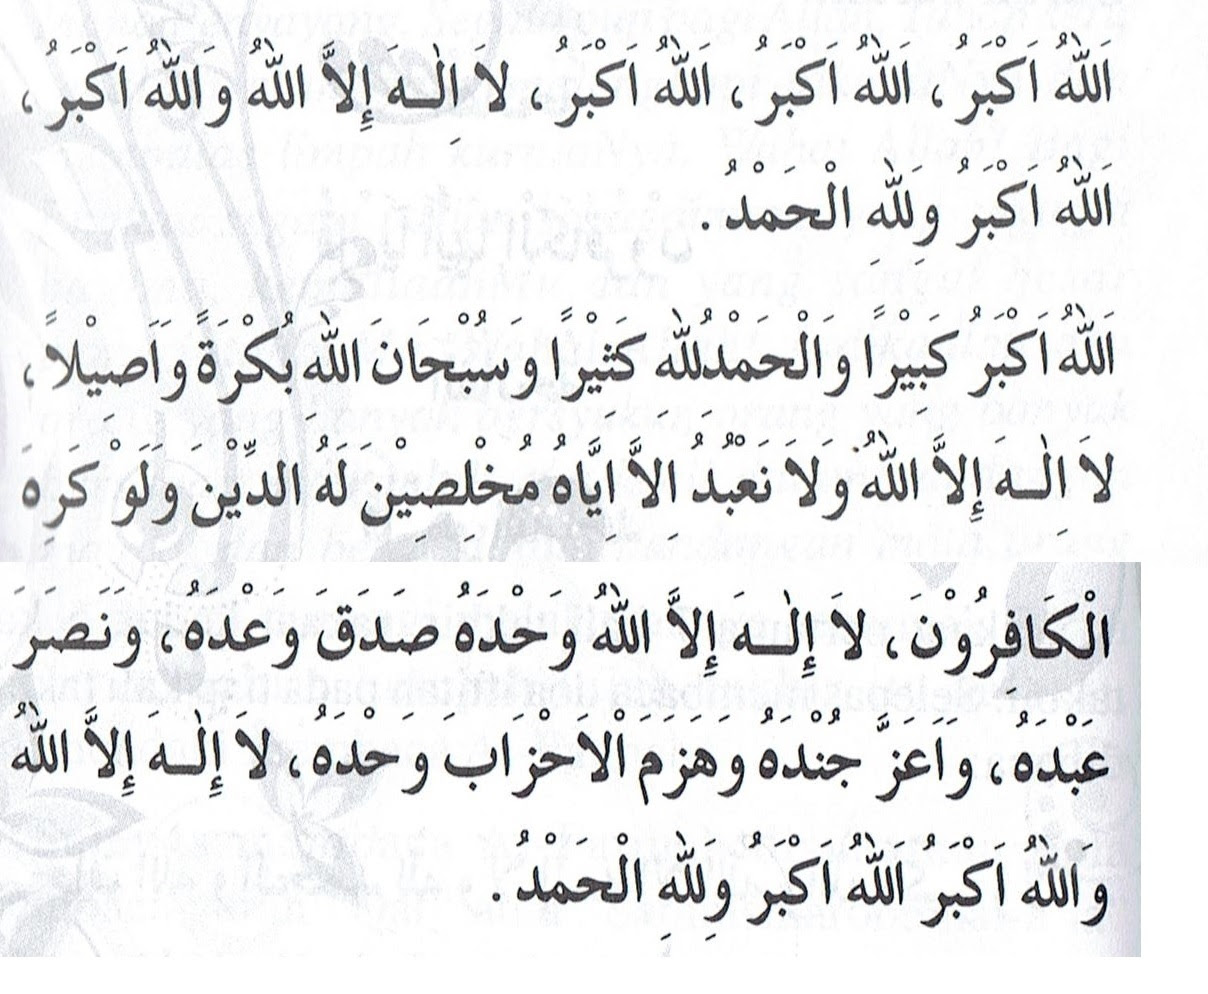 اَللّٰهُ اَكْبَرُ ، اَللّٰهُ اَكْبَرُ ، اَللّٰهُ اَكْبَرُ ، لاَ اِلٰـهَ إِلاَّ اللّٰهُ وَ اللّٰهُ اَكْبَرُ ،
اَللّٰهُ اَكْبَرُ وَلِلّٰهِ الْحَمْدُ .
اَللّٰهُ اَكْبَرُ كَبِيْرًا وَالْحَمْدُلِلّٰهِ كَثِيْرًا وَسُبْحَانَ اللّٰهِ بُكْرَةً وَاَصِيْلاً ،
لاَ اِلٰـهَ إِلاَّ اللّٰهُ وَلاَ نَعْبُدُ اِلاَّ اِيَّاهُ مُخْلِصِيْنَ لَهُ الدِّيْنَ وَلَوْ كَرِهَ
الْكَافِرُوْنَ ، لاَ إِلٰـهَ إِلاَّ اللّٰهُ وَحْدَهُ صَدَقَ وَعْدَهُ ، وَنَصَرَ
عَبْدَهُ ، وَاَعَزَّ جُنْدَهُ وَهَزَمَ الْاَحْزَابَ وَحْدَهُ ، لاَ إِلٰـهَ إِلاَّ اللّٰهُ
وَاللّٰهُ اَكْبَرُ اَللّٰهُ اَكْبَرُ وَلِلّٰهِ الْحَمْدُ .